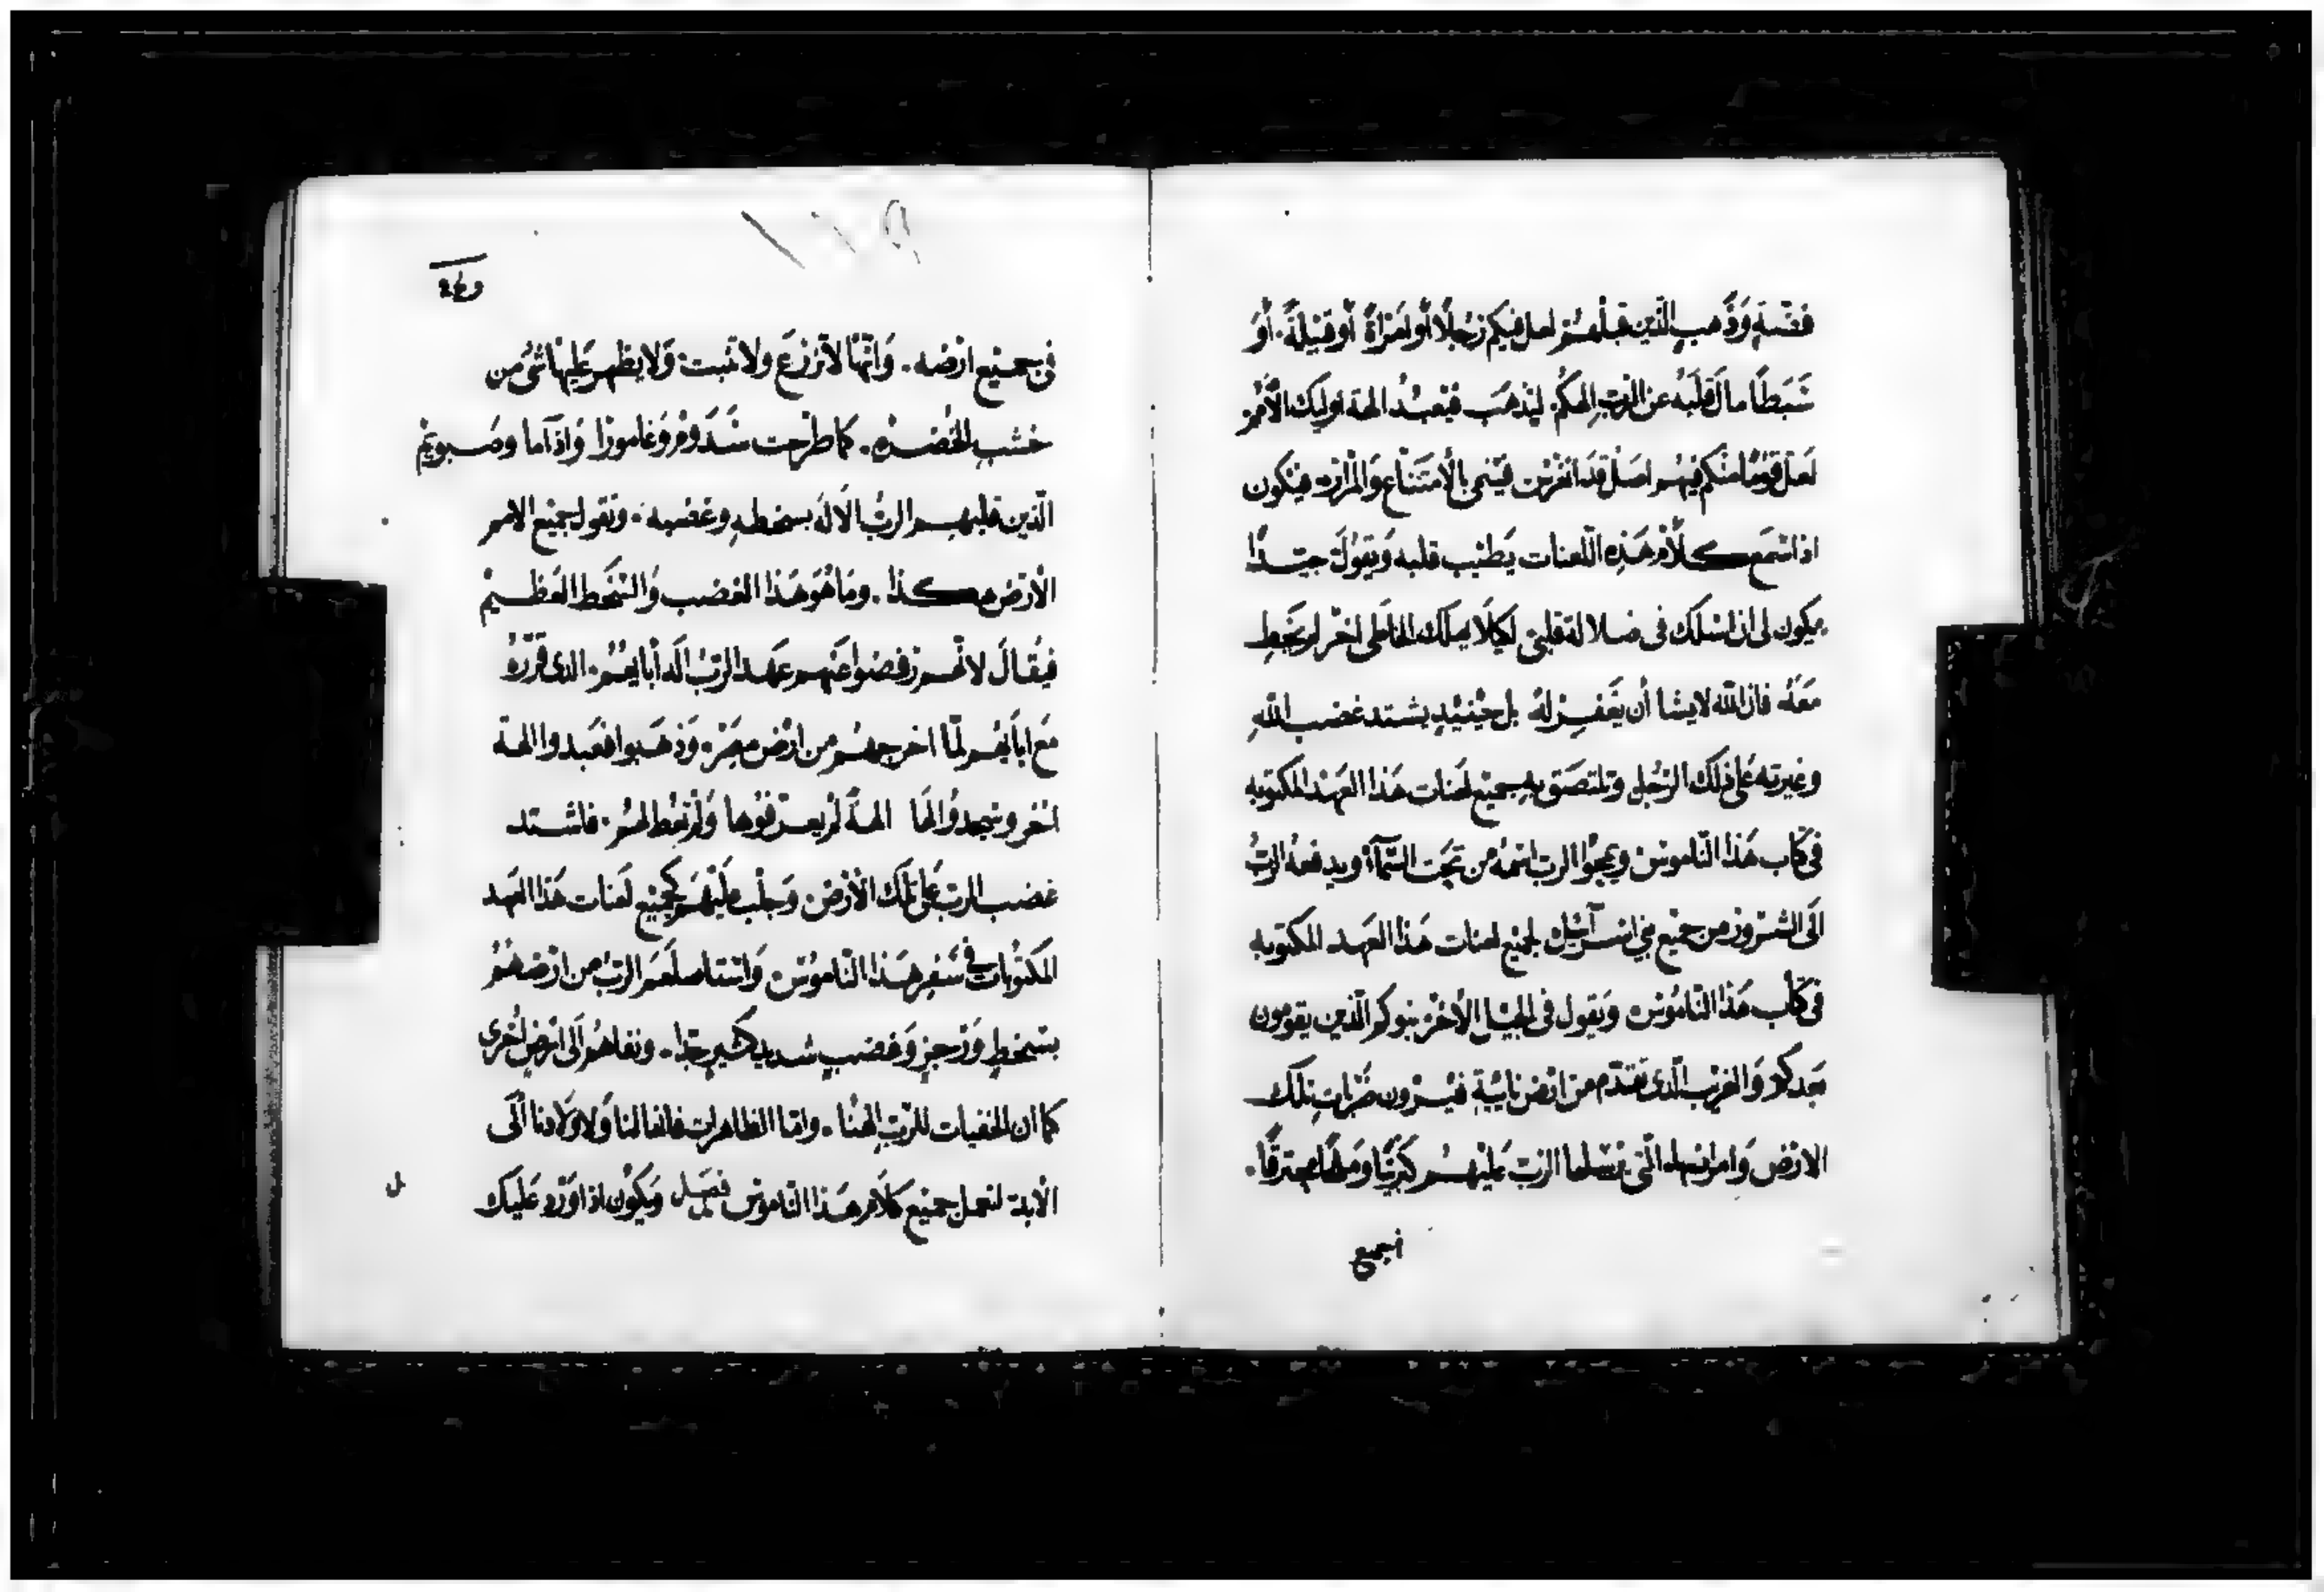 فضّة وذهب الّذين قبلهم لعل فيكم رجلًا أو امراة أو قبيلة. أو
سَبَطًا مال قلبَهُ عن الربِ الهكُم. ليَذهَب فيعبُد الهة اوليك الأمم
لعَل قومًا منكم فيهم اصل قد انغرس فيتمى بالأمتناع وَالمرارة فيكون
اذا سَمع كلاَم هَذِه اللّعنات يَطيب قلبه وَيقولَ جيّدًا
يكون لى ان اسلك فى ضلالة قلبى لكيلا يهلك الخاطى اخر لم يخط
مَعَهُ. فانّ اللّه لايشا أن يَغفِر لهُ بل حينيْدٍ يشتد غضب اللّهِ
وغيرته عَلى ذلك الرّجُل وتلتصَق به جميع لعنات هَذا العَهد المكتوبه
فى كتاب هَذا النّاموس ويمحُوا الرب اسمهُ من تحَت السّمآء ويدفعهُ الربُ
الَى الشرور من جميْع بنى اسرآئيل لجميع لعنات هَذا العَهد المكتوبه
فى كتاب هَذا النّامُوس وَيقول فى الجيل الأخر بنوكم الّذين يقومون
بَعدكم وَالغريب الّذى يقدم من ارْض نائيَة فيَرون ضَربات تلك
الارْض وَامراضهَا الّتى يرسلها الربّ عَليْهم كبريتًا ومَلحًا محترقًا.
فجميع
فى جميع ارْضه. وَانّها لاتزرَع ولا تنبت. وَلا يظهر عَليهَا شئ من
خشب الخُضرهِ. كما طرحت سَدوم وَغامورا وَاذاما وصَبويم
الّذين قلبهم الربُّ الألَه بسخطهِ وغضبه. وتقول جميع الامم
الأرض هكذا. ومَا هُوَ هَذا الغضَب وَالسَّخط العَظيم
فيُقال لانّهم رفضوا عَنهم عَهد الرّبُ اله أبايهُم. الذى قرّرهُ
مَع اباَيهم لمّا اخرجهُم من ارْض مصر. وَذهَبوا فعَبدوا الهة
اخر وسَجدوُا لهَا الهةً لم يعرفوُها وَلم تعُط لهُم. فاشتد
غضب الربّ عَلى تلك الأرض. وَجلب عليْهم كجميْع لعَنات هَذا العَهد
المكتوُبات فى سَفرِ هَذا النّاموُس وَاستاصلهم الربُّ من ارْضهُم
بسخطٍ وَرجزٍ وَغضبٍ شديد كثيرٍ جدًا. ونفاهُم الَى ارْضٍ اُخرى
كما ان الخفيات للرّبِ الهنا. وامّا الظاهرات فانها لنا وَلاولاَدنا الَى
الأبد لنعمل جميْع كلاَم هَذا النّاموس فصَل وَيكوُن اذا وَرد عَليك